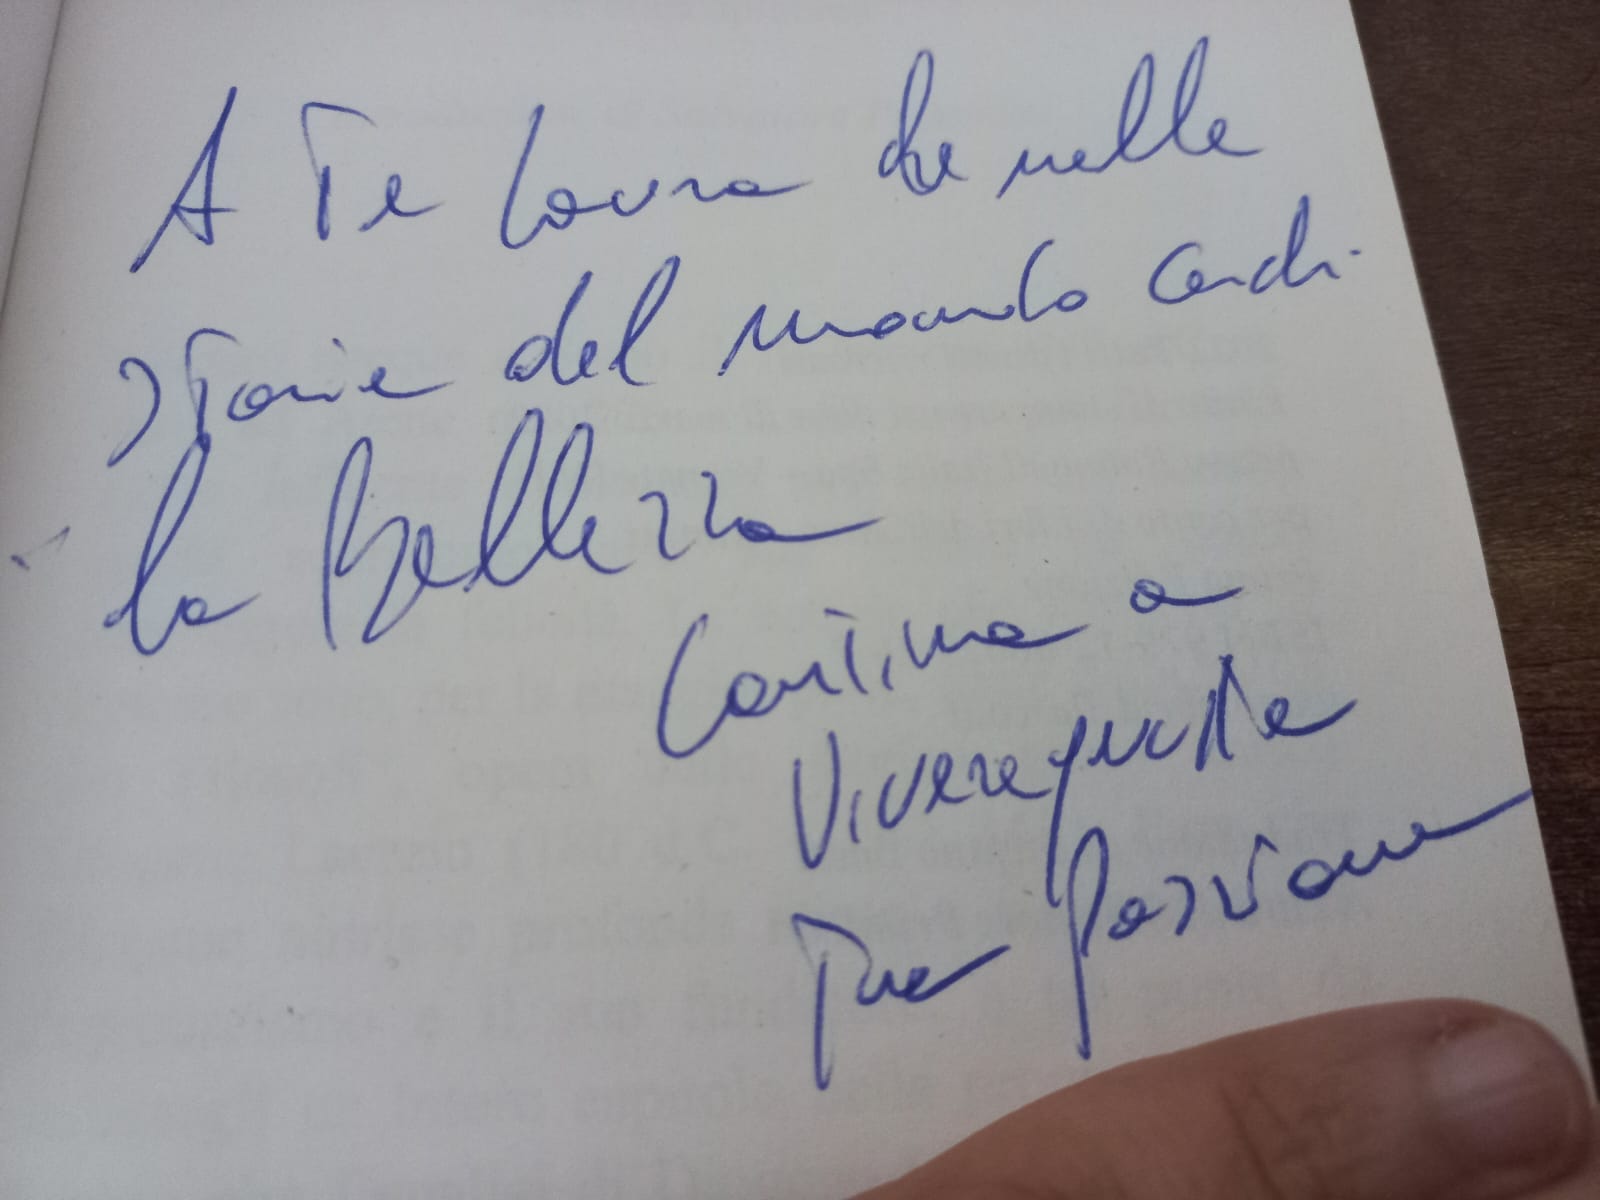 A Te Laura che nelle
storie del mondo cerchi
la Bellezza
Continua a
Vivere questa
Tua Passione